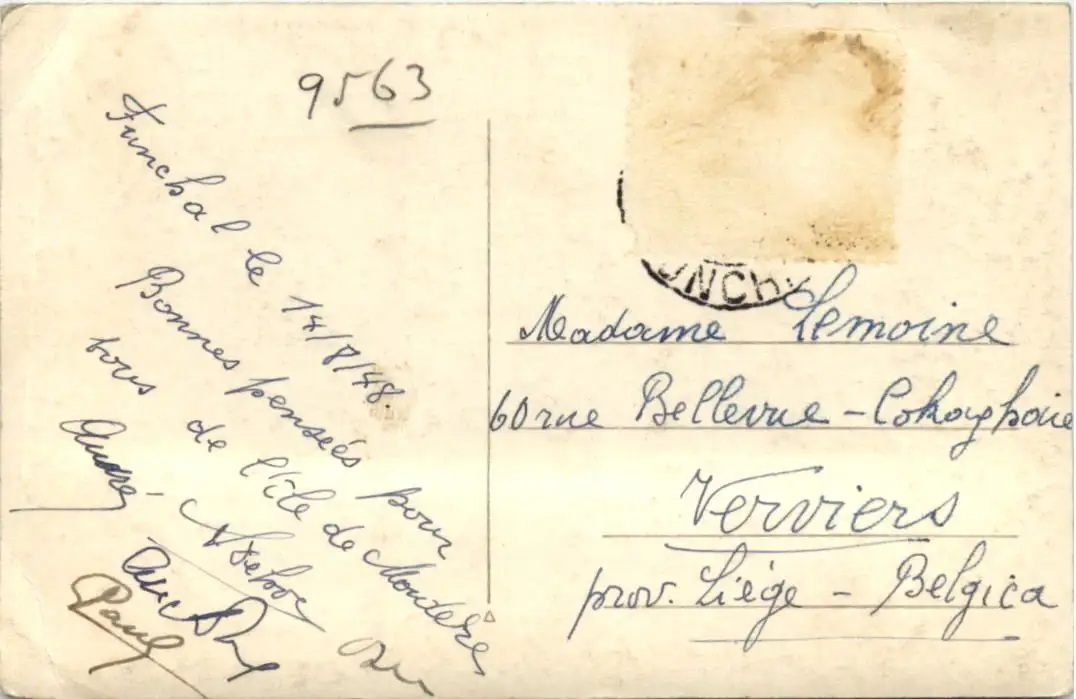 9563
Funchal le 14/8/48.
Bonnes penseés pour
tous de l'île de Moudères
André
Paul
UNCH
Madame Lemoine
60 rue Bellevue - Cokaghaie
Verviers
prov. Liége - Belgica